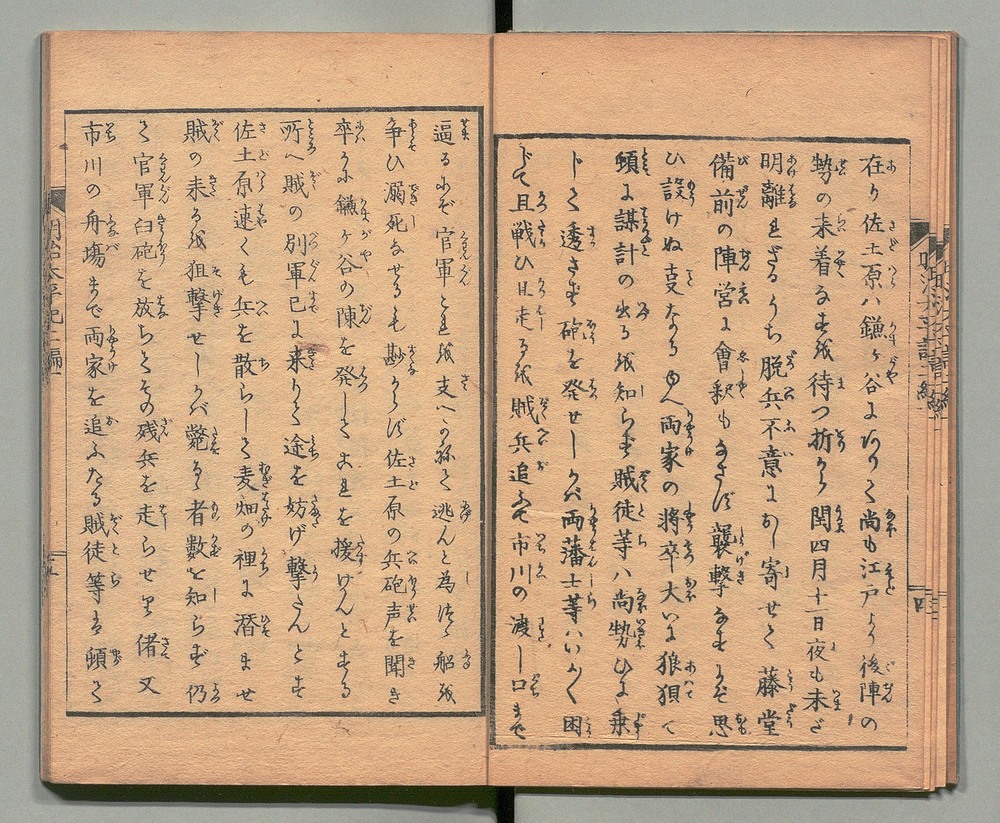 在り佐土原ハ鎌ヶ谷にありて尚も江戸より後陣の
勢の来着なすを待つ折から閏四月十一日夜も未だ
明離れざるうち脱兵不意におし寄せて藤堂
備前の陣営に會釈もなさず襲撃なすにぞ思
ひ設けぬ支なるゆへ両家の將卒大いに狼狽て
頓に謀計の出るを知らず賊徒等ハ尚勢ひに乗
じて透さず砲を発せしかバ両藩士等ハいかく困
じて且戦ひ且走るを賊兵追ふて市川の渡し口まで
逼るにぞ官軍これを支へかねて逃んと為しつゝ船を
争ひ溺死なせるも尠からず佐土原の兵砲声を聞き
卒かに鎌ヶ谷の陳を発してこれを援けんとする
所へ賊の別軍已に来りて途を妨げ撃たんとす
佐土原速くも兵を散らして麦畑の裡に潜ませ
賊の来るを狙撃せしかバ斃るゝ者數を知らず仍
て官軍臼砲を放ちてその残兵を走らせり偖又
市川の舟場まで両家を追ふたる賊徒等は頓て
明治太平記二編二